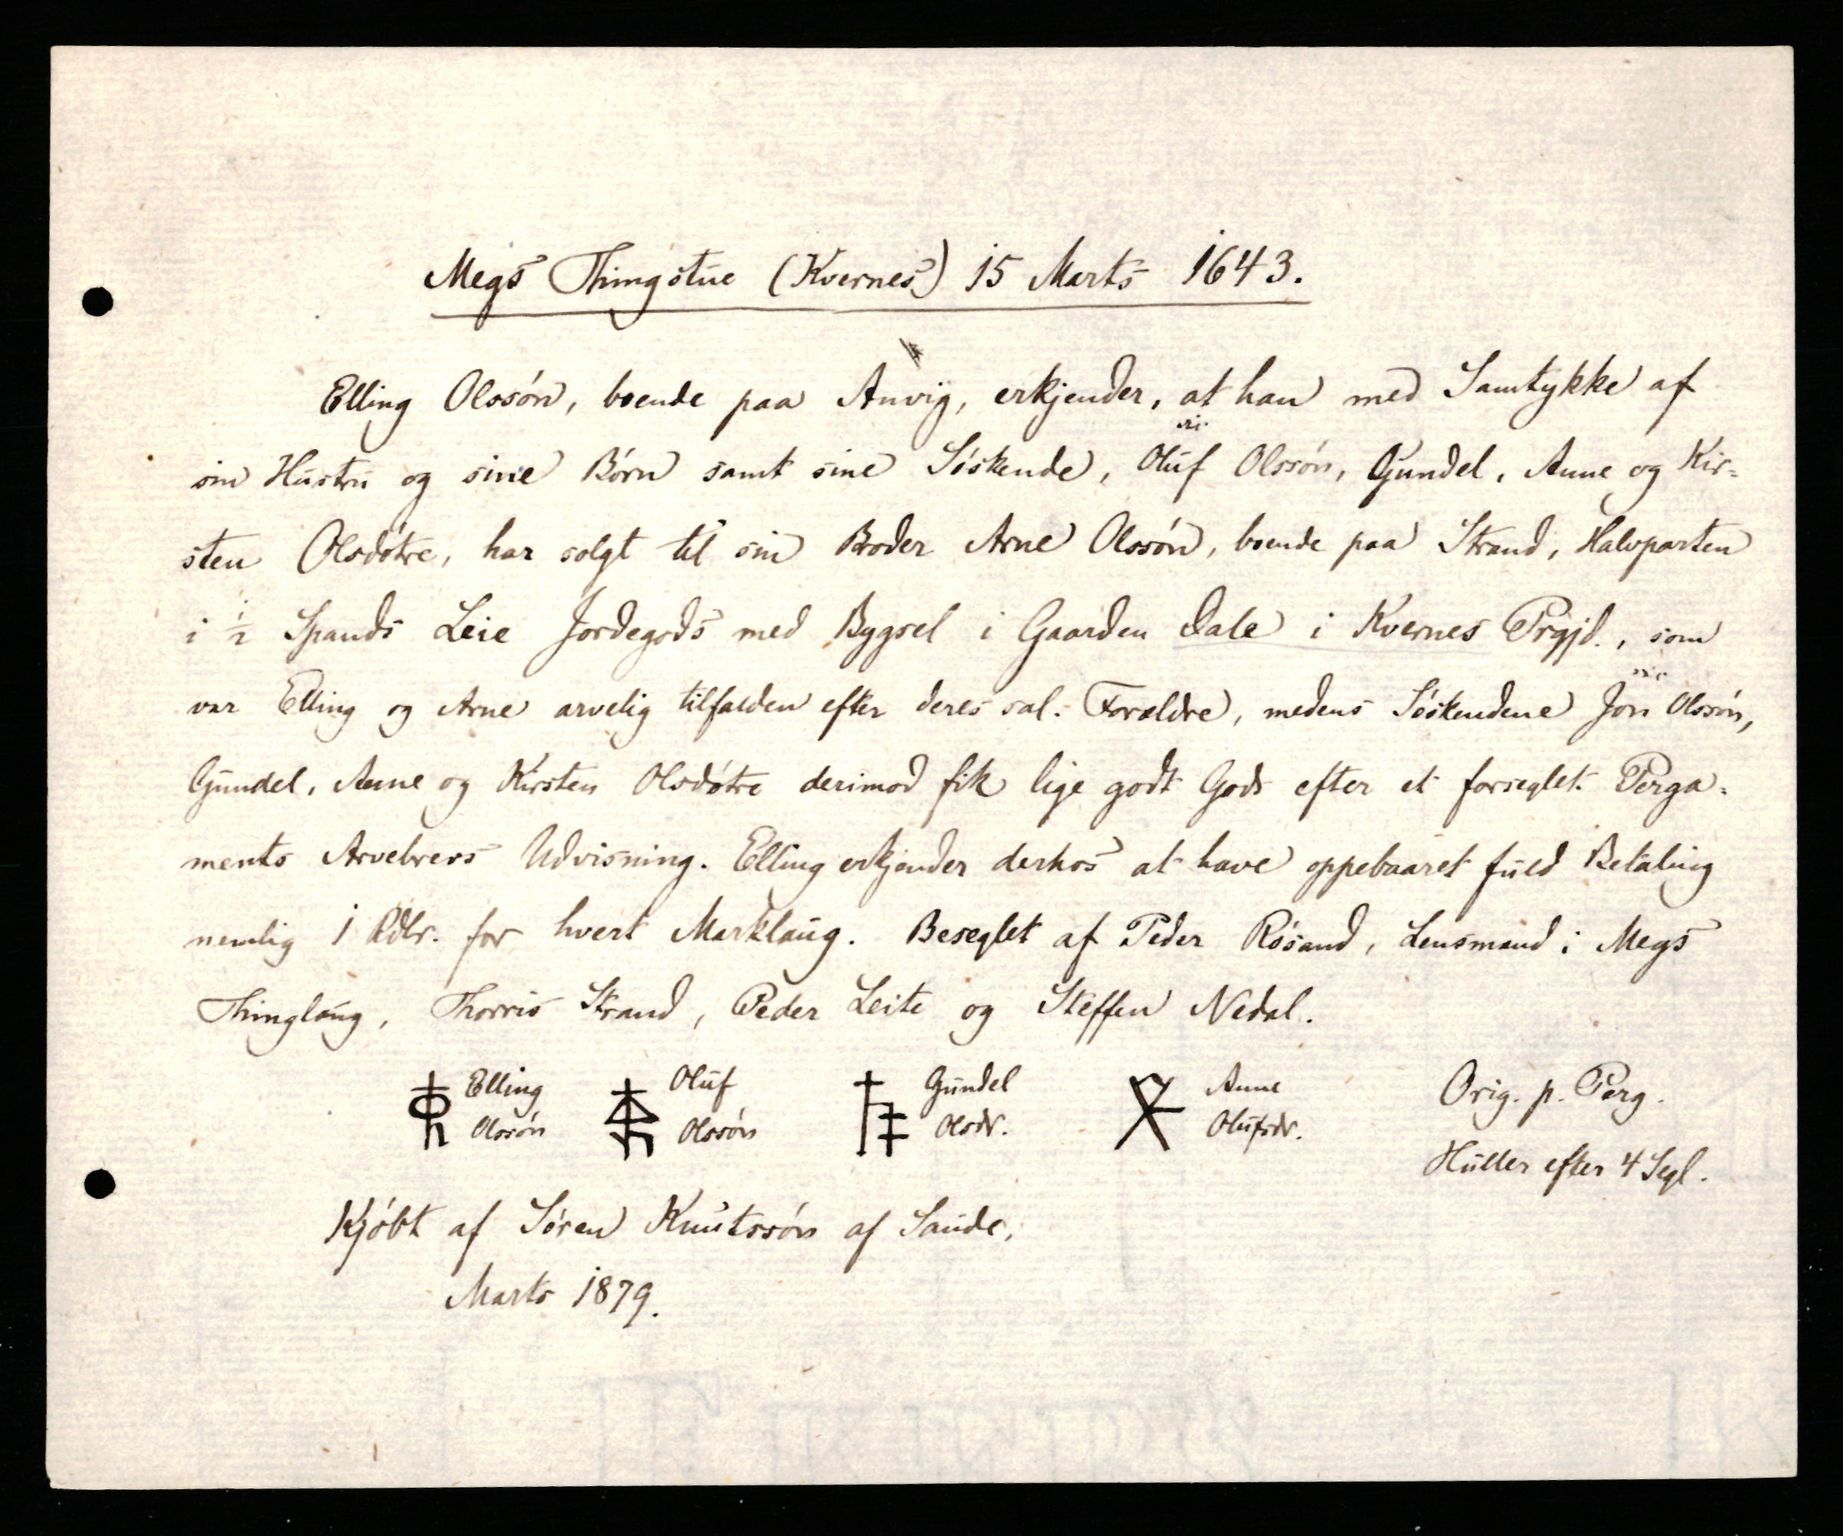 Megs Thingstue (Kvernes) 15 Marts 1643.
Elling Olssón, boende paa Anvig, erkjender, at han med Samtykke af
sin Hustru og sine Börn samt sine Söskende, Oluf Olssón, Gundel, Anne og Kir-
sten Olsdötre, har solgt til sin Broder Arne Olssón, boende paa Strand, Halvparten
i ½ Spands Leie Jordegods med Bygsel i Gaarden Dale i Kvernes Prgjd., som
var Elling og Arne arvelig tilfalden efter deres sal. Forældre, medens Söskendene Jon Olssón,
Gundel, Anne og Kirsten Olsdøtre derimod fik lige godt Gods efter et forseglet Perga-
ments Arvebrevs Udvisning. Elling erkjender derhos at have oppebaaret fuld Betaling
nemlig 1 Rdlr. for hvert Marklaug. Beseglet af Peder Rósand, Lensmand i Megs
Thinglaug, Thorris Strand, Peder Leite og Steffen Nedal.
Elling Oluf Gundel Anne Orig. p. Perg.
Olssón Olssón Olsdr. Olufsdr.
Huller efter 4 Segl.
Kjóbt af Sören Knutssón af Saude,
Marts 1879.